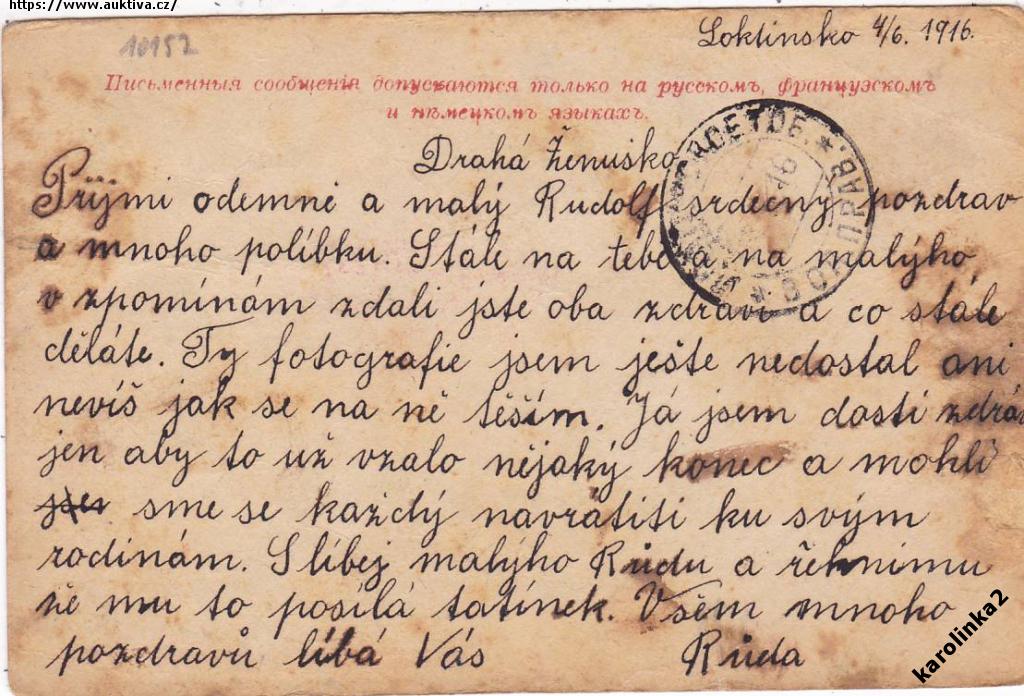 https://www.auktiva.cz/
10152
Loktinsko 4/6. 1916.
Письменныя сообщенія допускаются только на русскомъ, французскомъ
и нѣмецкомъ языкахъ.
Drahá Ženuško
Přijmi odemne a malý Rudolf srdečny pozdrav
a mnoho políbku. Stále na tebe a na malýho
v zpomínám zdali jste oba zdravi a co stále
děláte. Ty fotografie jsem ješte nedostal ani
nevíš jak se na ně těším. Já jsem dosti zdráv
jen aby to už vzalo nějaký konec a mohli
sme se každý navrátiti ku svým
rodinám. Slíbej malýho Růdu a řekni mu
že mu to posílá tatínek. Všem mnoho
pozdravů líbá Vás Růda
karolinka2